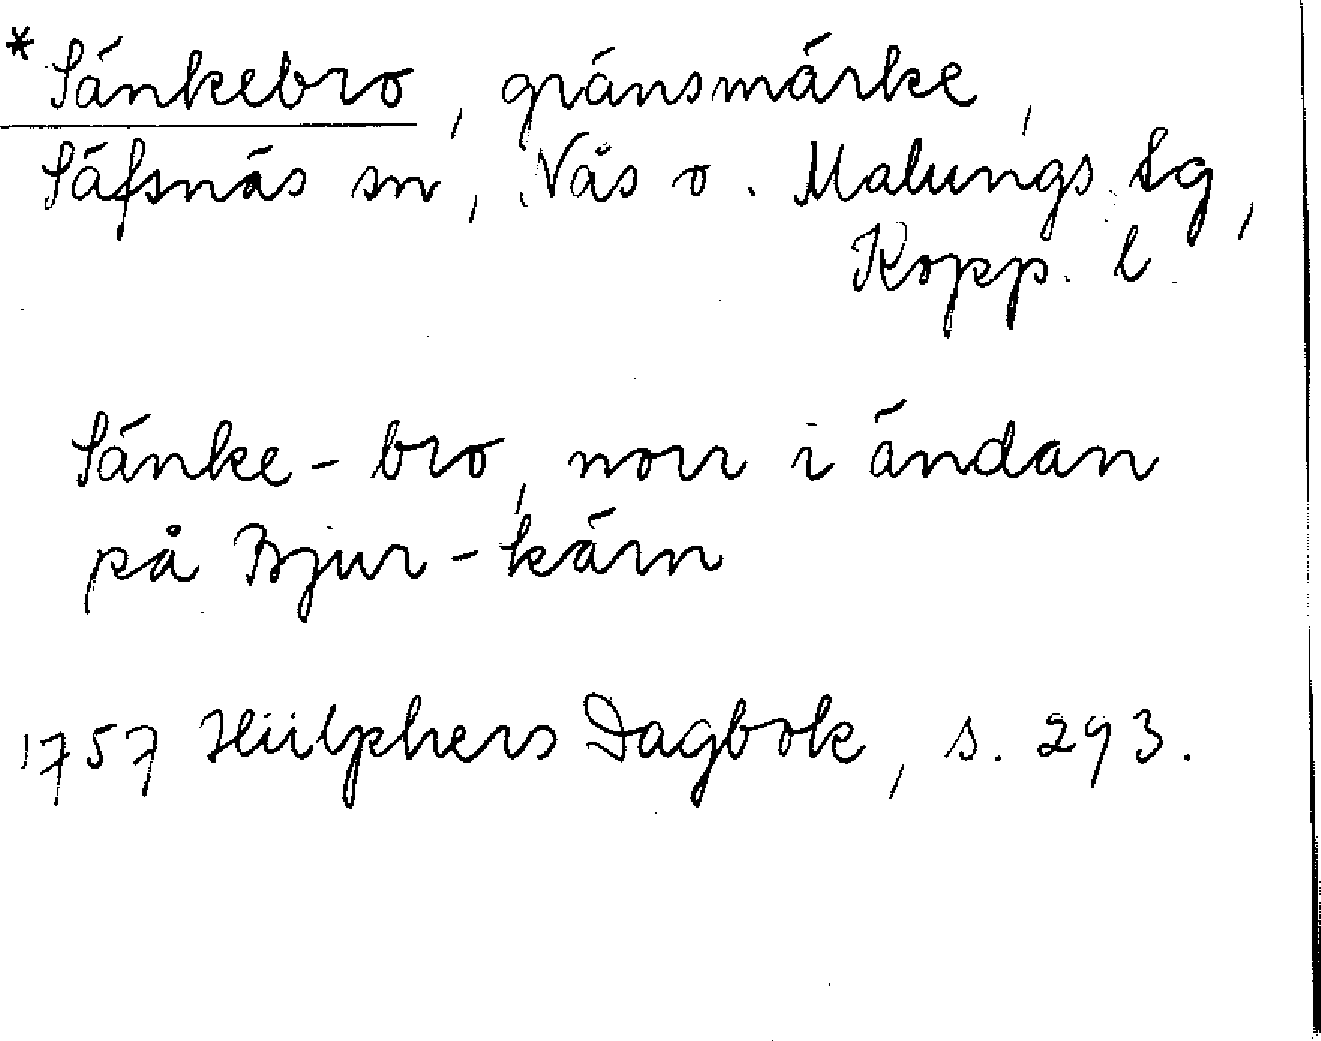 *Sänkebro, gränsmärke,
Säfsnäs sn, Nås o. Malungs tg,
Kopp. l
Sänke-bro, norr i ändan
på Bjur-kärn
1757 Hülphers Dagbok, s. 293.